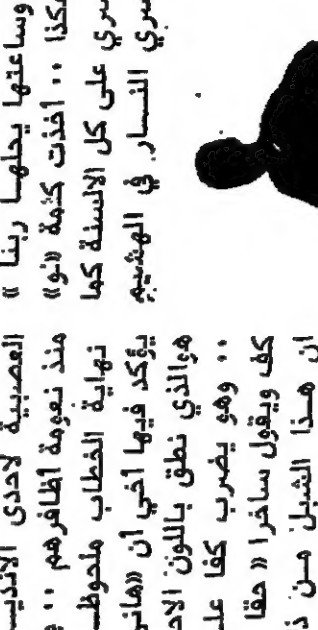 وساعتها يحلها ربنا »
هكذا .. أخذت كلمة «نو»
سري على كل الالسنة كما
سري النسار في الهشيم
العصبية لاحدى الانديـ
منذ نعومة اظافرهم ..
نهاية الخطاب ملحوظـ
يؤكد فيها أخي أن «هانى
هوالذي نطق باللون الاحـ
.. وهو يضرب كفا علـ
كف ويقول ساخرا « حقا
ان هـذا الشبل مـن ذ